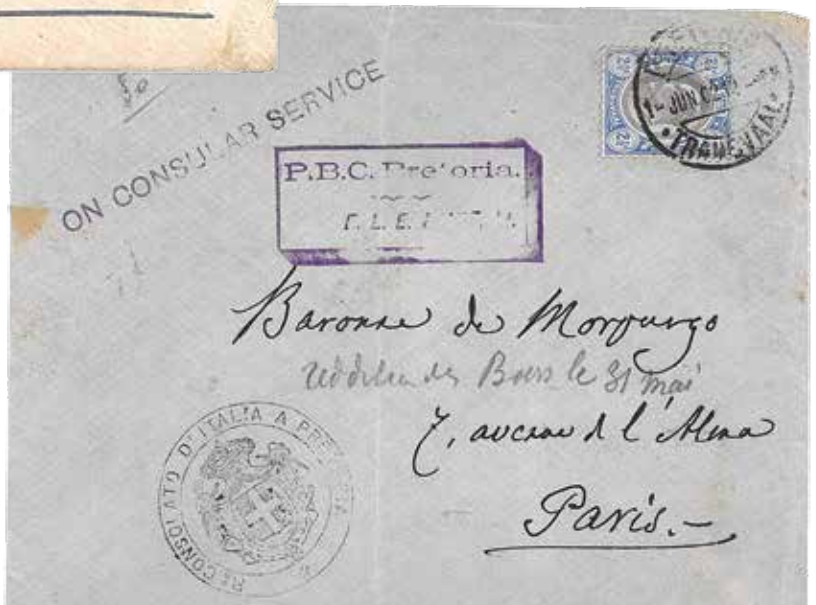 ON CONSULAR SERVICE
1- JUN
TRANSVAAL
P.B.C. Pretoria.
Baronne de Morpurgo
des Boers le 31 mai
7, avenue de l'Alma
Paris.-
R. CONSOLATO D'ITALIA A PRETORIA